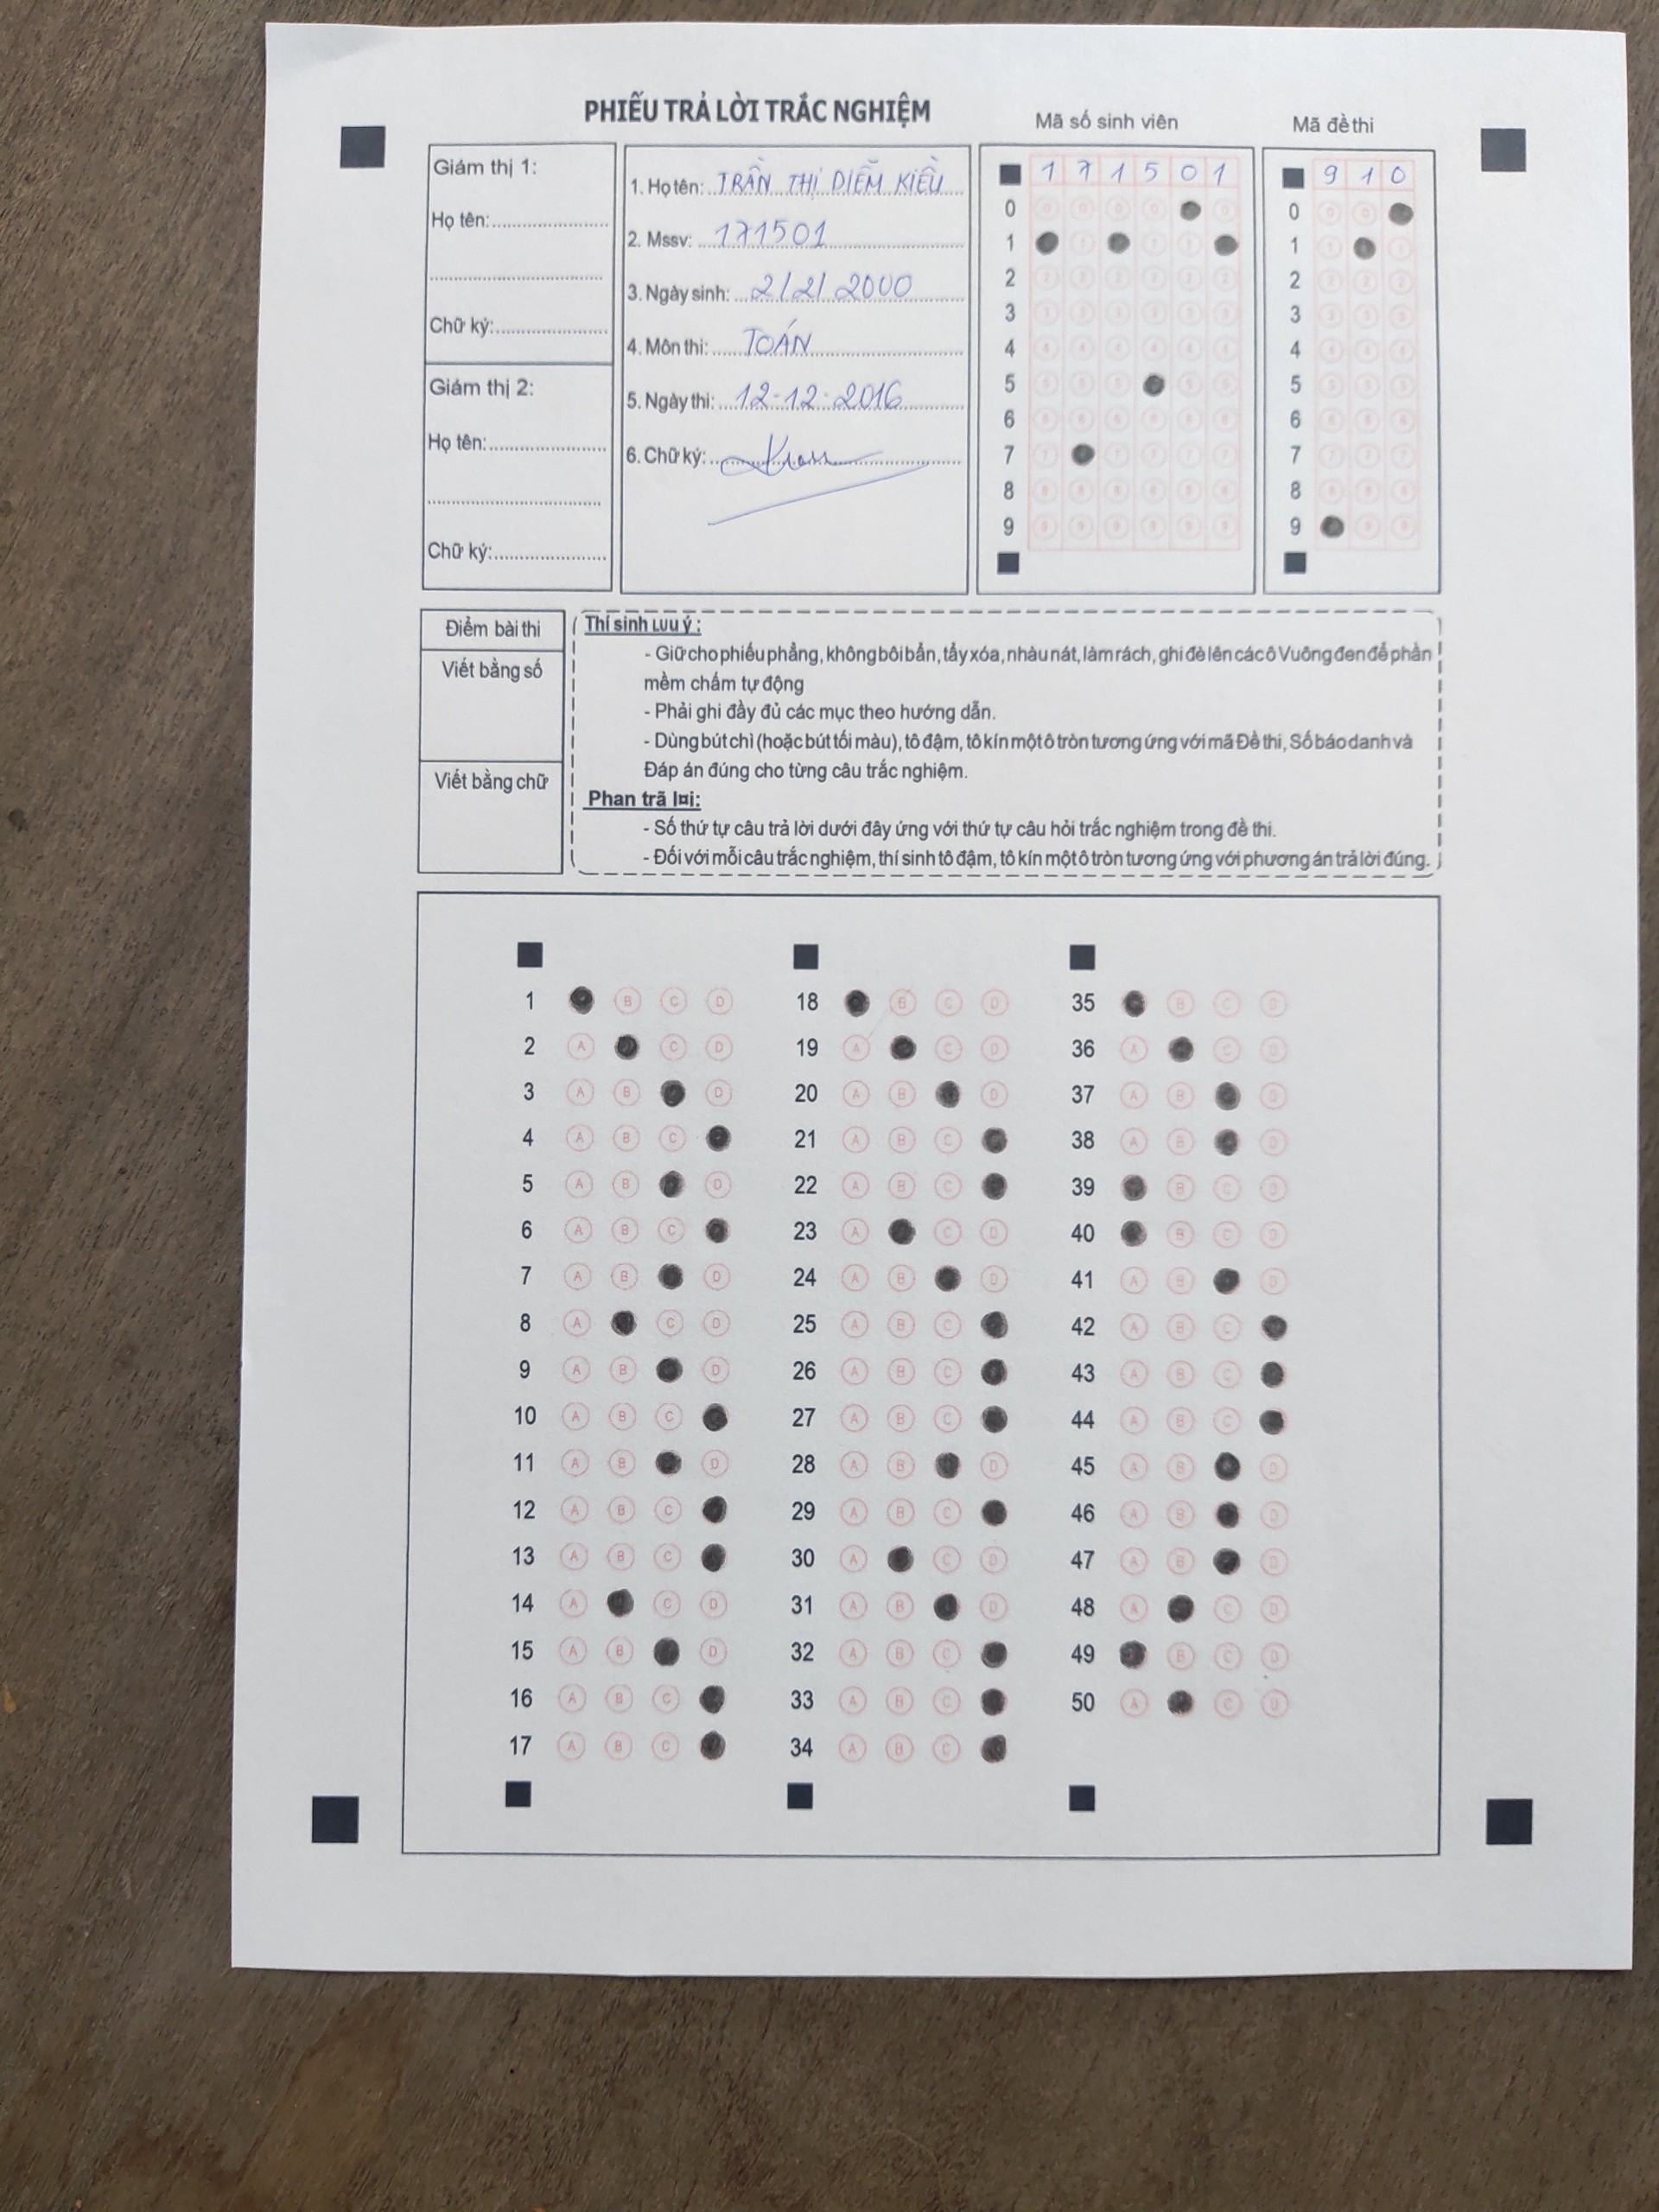 PHIẾU TRẢ LỜI TRẮC NGHIỆM
Mã số sinh viên
Mã đề thi
Giám thị 1:
Họ tên:
Chữ ký:
Giám thị 2:
Họ tên:
Chữ ký:
1. Họ tên: TRẦN THỊ DIỄM KIỀU
2. Mssv: 171501
3. Ngày sinh: 2/2/2000
4. Môn thi: TOÁN
5. Ngày thi: 12-12-2016
6. Chữ ký:
1 7 1 5 0 1
0
1
2
3
4
5
6
7
8
9
9 1 0
0
1
2
3
4
5
6
7
8
9
Điểm bài thi
Viết bằng số
Viết bằng chữ
Thí sinh LƯU ý :
- Giữ cho phiếu phẳng, không bôi bẩn, tẩy xóa, nhàu nát, làm rách, ghi đè lên các ô Vuông đen để phần
mềm chấm tự động
- Phải ghi đầy đủ các mục theo hướng dẫn.
- Dùng bút chì (hoặc bút tối màu), tô đậm, tô kín một ô tròn tương ứng với mã Đề thi, Số báo danh và
Đáp án đúng cho từng câu trắc nghiệm.
Phan trã l¤i:
- Số thứ tự câu trả lời dưới đây ứng với thứ tự câu hỏi trắc nghiệm trong đề thi.
- Đối với mỗi câu trắc nghiệm, thí sinh tô đậm, tô kín một ô tròn tương ứng với phương án trả lời đúng.
1 B C D
2 A C D
3 A B D
4 A B C
5 A B D
6 A B C
7 A B D
8 A C D
9 A B D
10 A B C
11 A B D
12 A B C
13 A B C
14 A C D
15 A B D
16 A B C
17 A B C
18 B C D
19 A C D
20 A B D
21 A B C
22 A B C
23 A C D
24 A B D
25 A B C
26 A B C
27 A B C
28 A B D
29 A B C
30 A C D
31 A B D
32 A B C
33 A B C
34 A B C
35 B C D
36 A C D
37 A B D
38 A B D
39 B C D
40 B C D
41 A B D
42 A B C
43 A B C
44 A B C
45 A B D
46 A B D
47 A B D
48 A C D
49 B C D
50 A C D